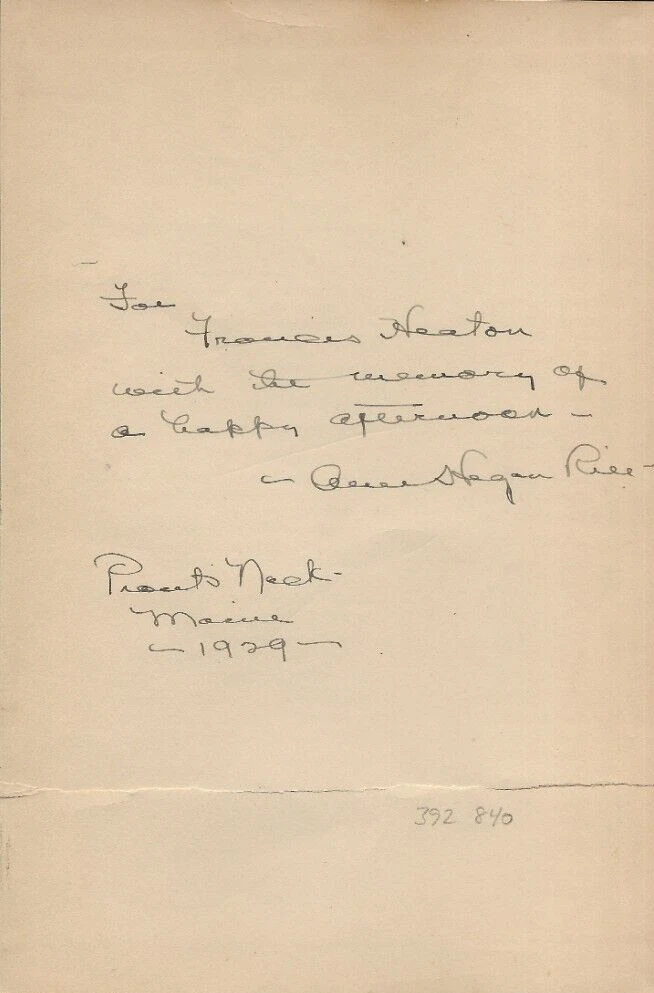 For
Frances Heaton
with the memory of
a happy afternoon -
- Alice Hegan Rice -
Prouts Neck -
Maine
- 1929 -
392 840